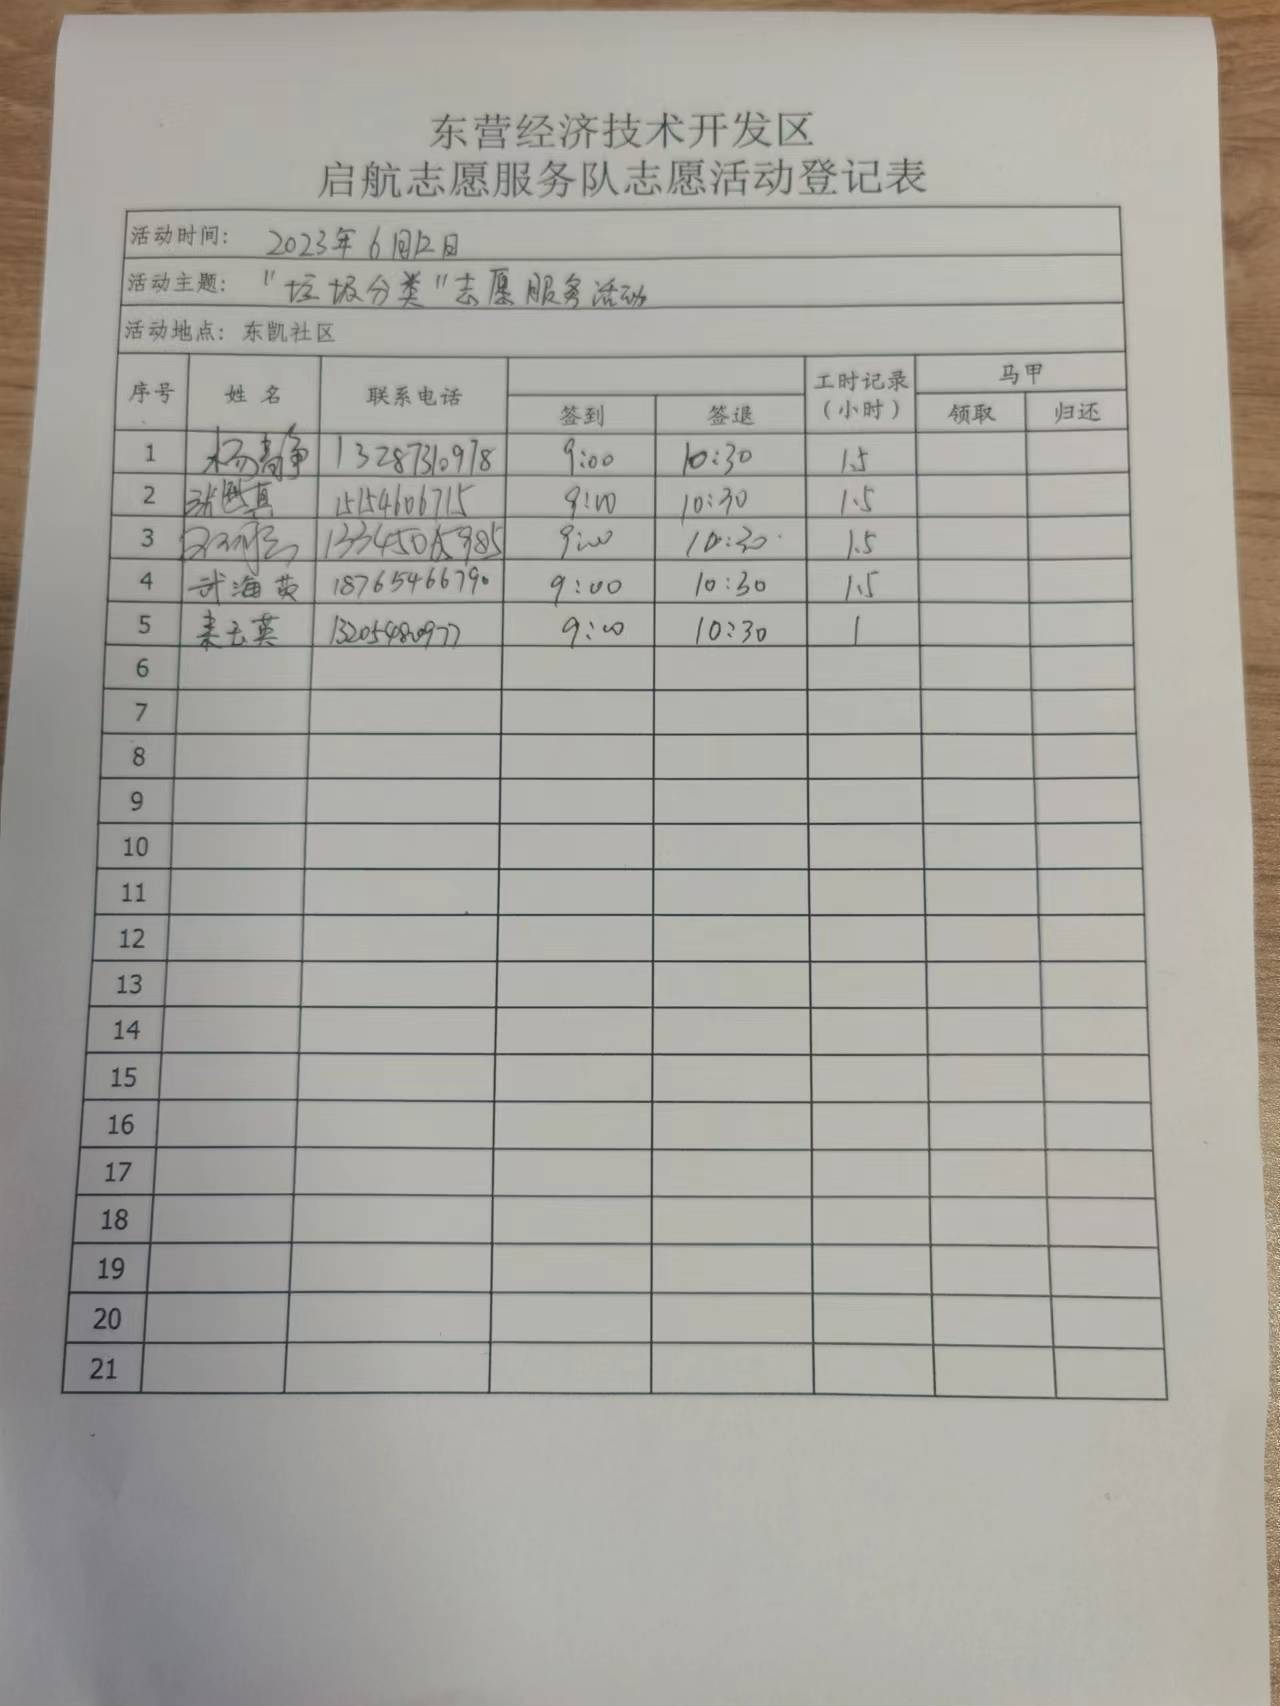 东营经济技术开发区
启航志愿服务队志愿活动登记表
活动时间: 2023年6月12日
活动主题: "垃圾分类"志愿服务活动
活动地点: 东凯社区
序号 姓名 联系电话 签到 签退 工时记录(小时) 马甲 领取 归还
1 杨静 13287310978 9:00 10:30 1.5
2 15154606715 9:00 10:30 1.5
3 9:00 10:30 1.5
4 武海英 18765466790 9:00 10:30 1.5
5 英 13205480977 9:00 10:30 1
6
7
8
9
10
11
12
13
14
15
16
17
18
19
20
21